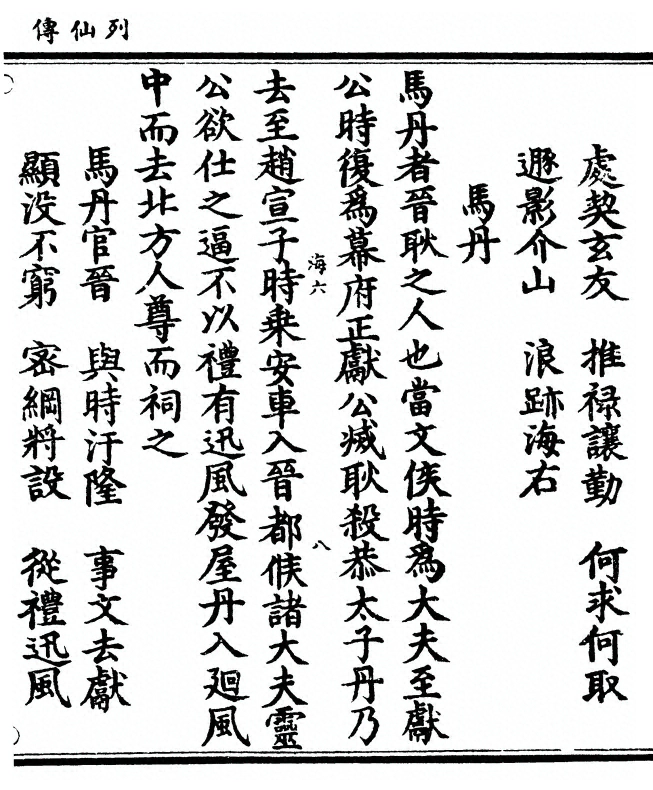 列仙傳
處契玄友　推禄讓勤　何求何取
遯影介山　浪跡海右
馬丹
馬丹者晉耿之人也當文侯時爲大夫至獻
公時復爲幕府正獻公滅耿殺恭太子丹乃
海六
八
去至趙宣子時乗安車入晉都候諸大夫靈
公欲仕之逼不以禮有迅風發屋丹入廻風
中而去北方人尊而祠之
馬丹官晉　與時汙隆　事文去獻
顯没不窮　密網將設　從禮迅風